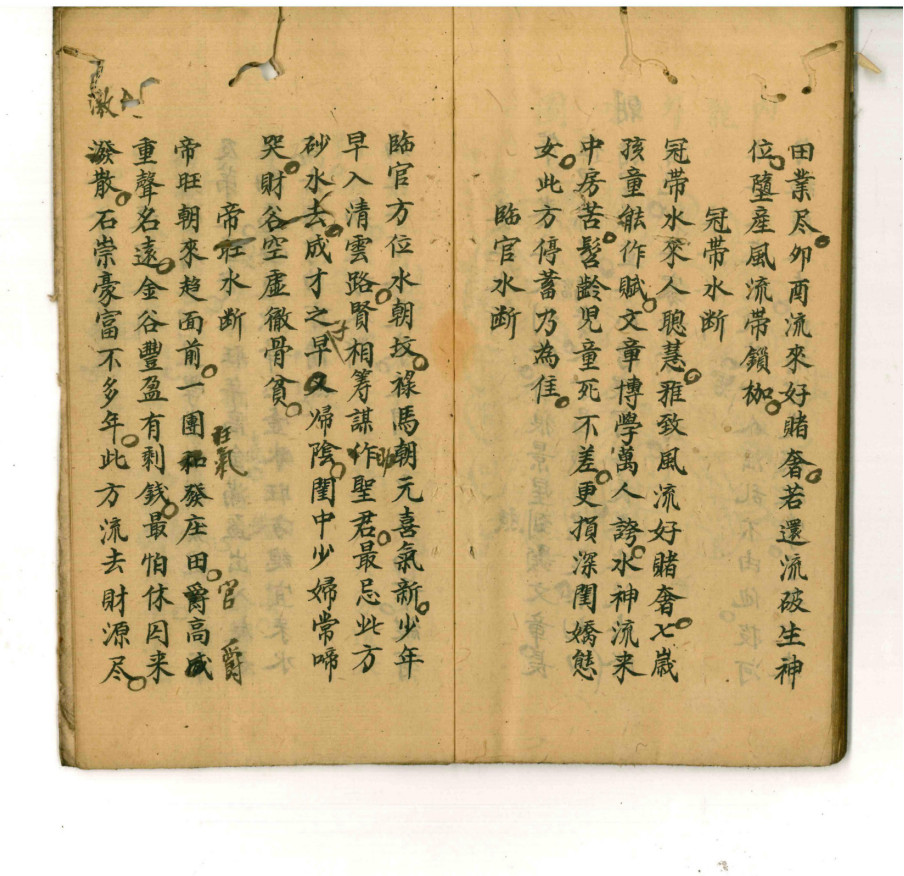 田業尽卯酉流來好賭奢若還流破生神
位墮産風流帶鎖枷
冠帶水断
冠帶水來人聰慧雅致風流好賭奢七歲
孩童能作賦文章博學萬人誇水神流来
中房苦髫齡児童死不差更損深閨嬌態
女此方停蓄乃為佳
臨官水断
臨官方位水朝坟祿馬朝元喜氣新少年
早入清雲路賢相筹謀作聖君最忌此方
砂水去成才之早又㷌陰閨中少婦常啼
哭財谷空虛徹骨貧
帝旺水断
旺氣 官 爵
帝旺朝來趋面前一團和發庄田爵高成
重聲名遠金谷豐盈有剩錢最怕休囚来
激
潑散石崇豪富不多年此方流去財源尽